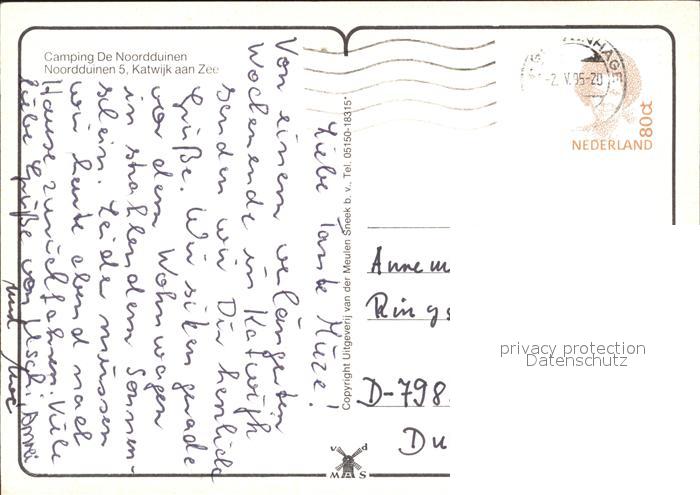 Camping De Noordduinen
Noordduinen 5, Katwijk aan Zee
Liebe Tante Müze!
Von einem verlängerten
Wochenende in Katwijk
senden wir Dir herzliche
Grüße. Wir sitzen gerade
vor dem Wohnwagen
in strahlendem Sonnen-
schein. Leider müssen
wir heute abend nach
Hause zurückfahren. Viele
liebe Grüße von Uschi,
und
Copyright Uitgeverij van der Meulen Sneek b.v., Tel. 05150-18315*
-2.V.95-20
NEDERLAND
80ct
Annem
Rings
D-798
Du
v d
M S
privacy protection
Datenschutz